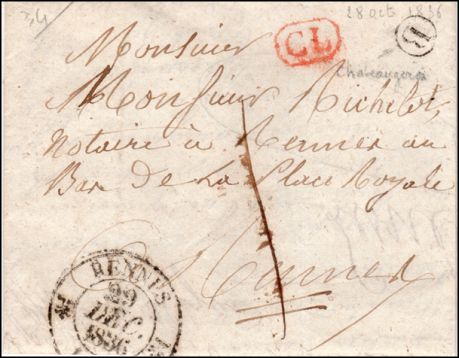 28 oct 1836
CL
Chateaugiron
Monsieur
Monsieur Michelot
notaire à Rennes au
Bas De La Place Royale
Rennes
RENNES
29
DEC
1836